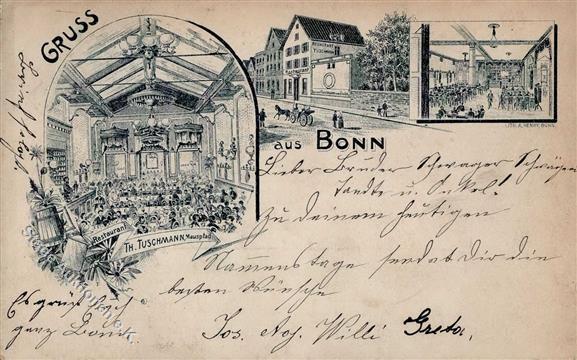 GRUSS
aus BONN
RESTAURANT
TUSCHMANN
Restaurant
TH. TUSCHMANN, Mauspfad
LITH. A. HENRY, BONN.
Lieber Bruder Schwager
Tandte u. Onkel!
Zu deinem heutigen
Namenstage sendet dir die
besten Wünsche
Jos. Willi Greta.
Es grüßt
ganz Bonn.